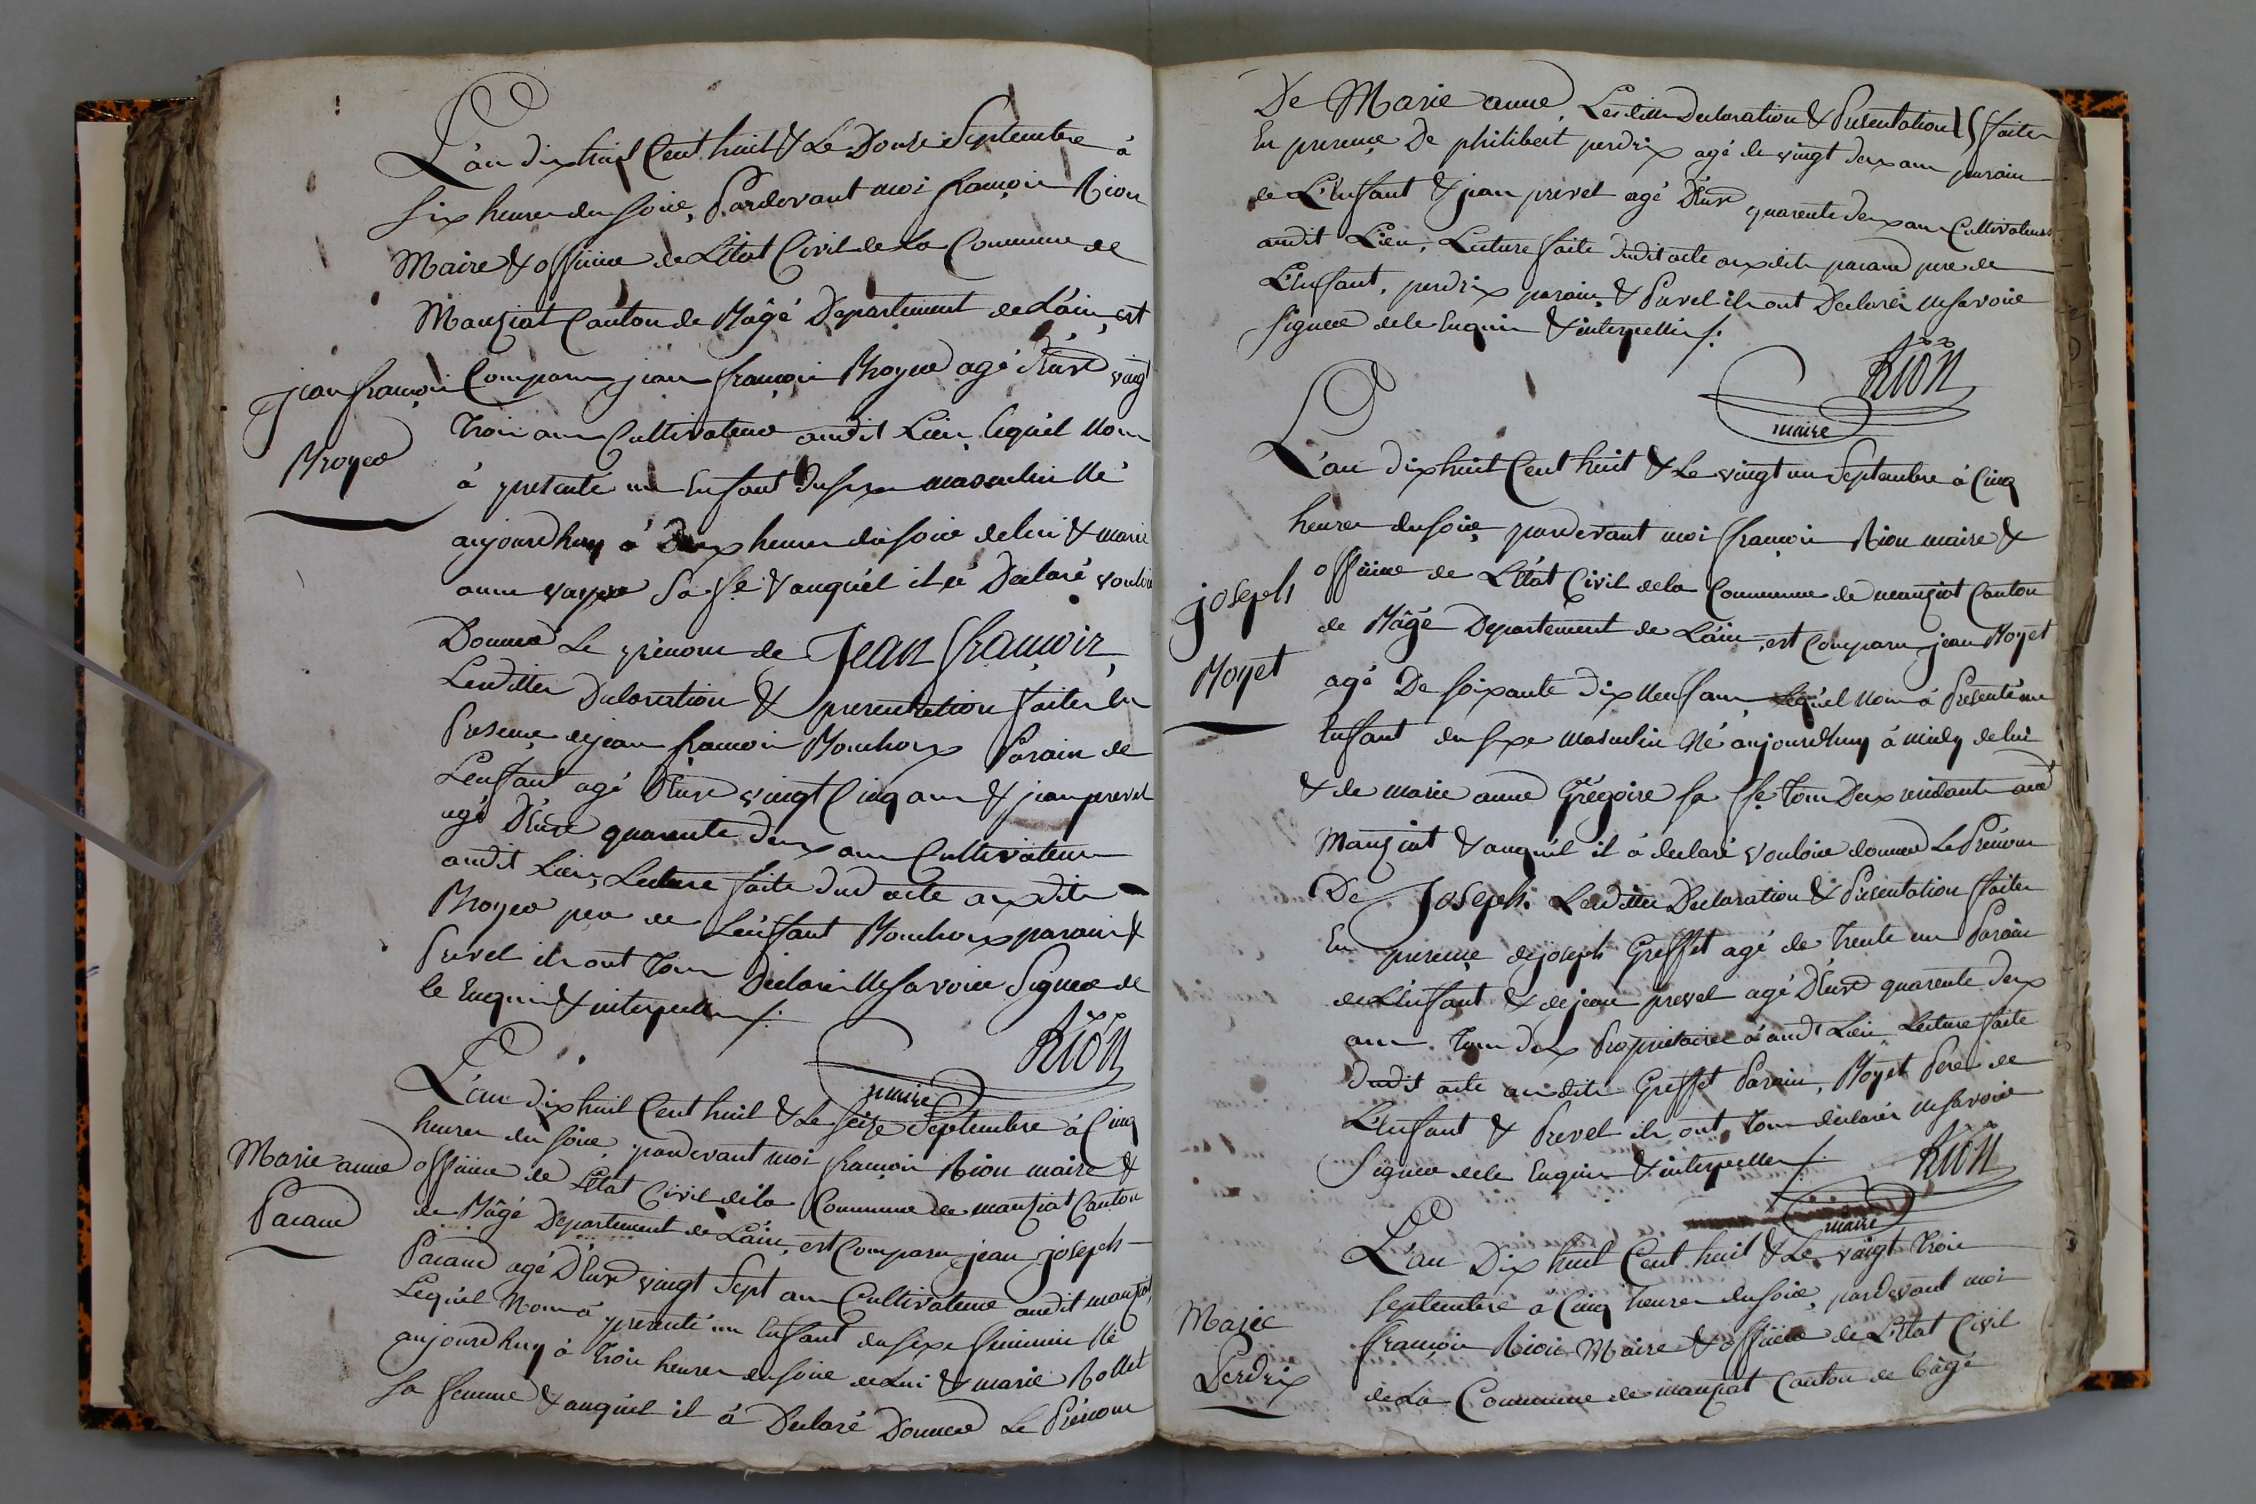 L'an dix huit Cent huit & Le Douze Septembre à
six heures du soire, Pardevant moi françois Rion
Maire & officier de L'Etat Civil de la Commune de
Manziat Canton de Bâgé Departement de L'ain, est
jean françois
Broyer
Comparu jean françois Broyer agé d'Env vingt
trois ans Cultivateur audit Lieu, lequel nous
à presenté un Enfant du sexe masculin Né
aujourdhuy à Deux heures du soire de lui & marie
anne sa fe & auquel il à Declaré vouloir
Donner Le prénom de Jean françois,
Lesdittes Declaration & presentation faites En
Presence de jean françois Bouchoux Parain de
L'enfant agé D'Env vingt Cinq ans & jean prevel
agé D'Env quarante deux ans Cultivateurs
audit Lieu, Lecture faite dud acte auxdits
Broyer pere de L'enfant Bouchoux parain &
Prevel ils ont Tous Declaré Ne savoir Signer de
le Enquis & interpellés /.
Rion
maire
L'an dix huit Cent huit & Le seize Septembre à Cinq
heures du soire, pardevant moi françois Rion maire &
Marie anne
Pacaud
officier de L'Etat Civil de la Commune de manziat Canton
de Bâgé Departement de L'ain, est Comparu jean joseph
Pacaud agé D'Env vingt Sept ans Cultivateur audit manziat,
Lequel Nous à presenté un Enfant du sexe feminin Né
aujourdhuy à trois heures du soire de Lui & marie Rollet
sa femme & auquel il à Declaré Donner Le Prénom
De Marie anne, Lesdittes Declaration & Presentation faites
En presence De philibert perdrix agé de vingt deux ans parain
de L'Enfant & jean prevel agé D'Env quarante deux ans Cultivateurs
audit Lieu, Lecture faite dudit acte auxdits pacaud pere de
L'Enfant, perdrix parain, & Prevel ils ont Declarés Ne savoir
Signer de le Enquis & interpellés /.
Rion
maire
L'an dix huit Cent huit & Le vingt un Septembre à Cinq
heures du soire pardevant moi françois Rion maire &
joseph
Boyet
officier de L'Etat Civil de la Commune de manziat Canton
de Bâgé Departement de L'ain, est Comparu jean Boyet
agé De soixante dix neuf ans, Lequel nous à Presenté un
Enfant du sexe masculin Né aujourdhuy à midy de lui
& de marie anne Grégoire sa fe Tous Deux residants aud
Manziat & auquel il à declaré vouloir donner Le Prénom
De Joseph. Lesdittes Declaration & Presentation faites
En presence de joseph Greffet agé de Trente un Parain
de L'Enfant & de jean prevel agé D'Env quarente deux
ans. Tous deux Proprietaires à audt Lieu Lecture faite
dudit acte auxdits Greffet Parain, Boyet Pere de
L'Enfant & Prevel ils ont Tous declarés Ne savoir
Signer de le Enquis & interpellés /.
Rion
maire
L'an Dix huit Cent huit & Le vingt Trois
septembre à Cinq heures du soire, pardevant moi
Marie
Perdrix
françois Rion Maire & officier de L'Etat Civil
de La Commune de manziat Canton de bâgé